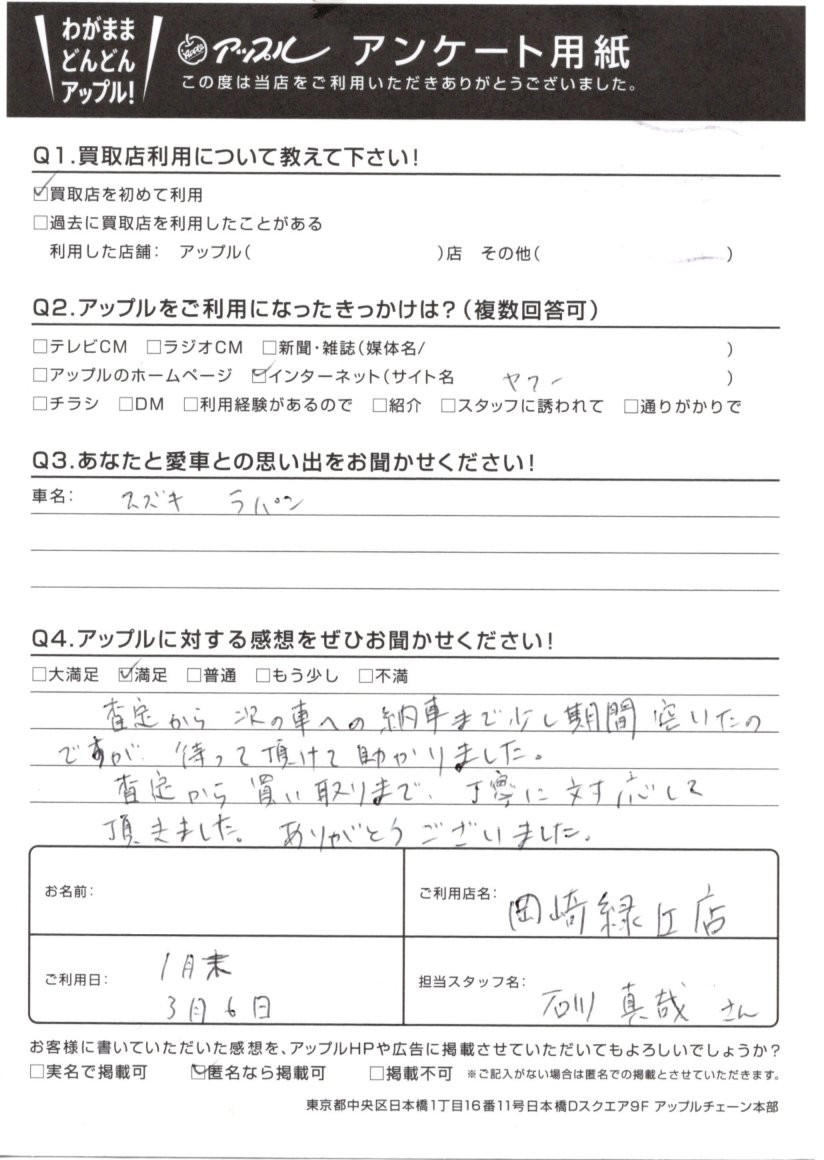 わがまま
どんどん
アップル!
Apple アップル アンケート用紙
この度は当店をご利用いただきありがとうございました。
Q1.買取店利用について教えて下さい!
☑買取店を初めて利用
□過去に買取店を利用したことがある
利用した店舗: アップル( )店 その他( )
Q2.アップルをご利用になったきっかけは?(複数回答可)
□テレビCM □ラジオCM □新聞・雑誌(媒体名/ )
□アップルのホームページ ☑インターネット(サイト名 ヤフー )
□チラシ □DM □利用経験があるので □紹介 □スタッフに誘われて □通りがかりで
Q3.あなたと愛車との思い出をお聞かせください!
車名: スズキ ラパン
Q4.アップルに対する感想をぜひお聞かせください!
□大満足 ☑満足 □普通 □もう少し □不満
査定から次の車への納車まで少し期間空いたの
ですが、待って頂けて助かりました。
査定から買い取りまで、丁寧に対応して
頂きました。ありがとうございました。
お名前:
ご利用店名: 岡崎緑丘店
ご利用日: 1月末
3月6日
担当スタッフ名: 石川 真哉 さん
お客様に書いていただいた感想を、アップルHPや広告に掲載させていただいてもよろしいでしょうか?
□実名で掲載可 ☑匿名なら掲載可 □掲載不可 ※ご記入がない場合は匿名での掲載とさせていただきます。
東京都中央区日本橋1丁目16番11号日本橋Dスクエア9F アップルチェーン本部